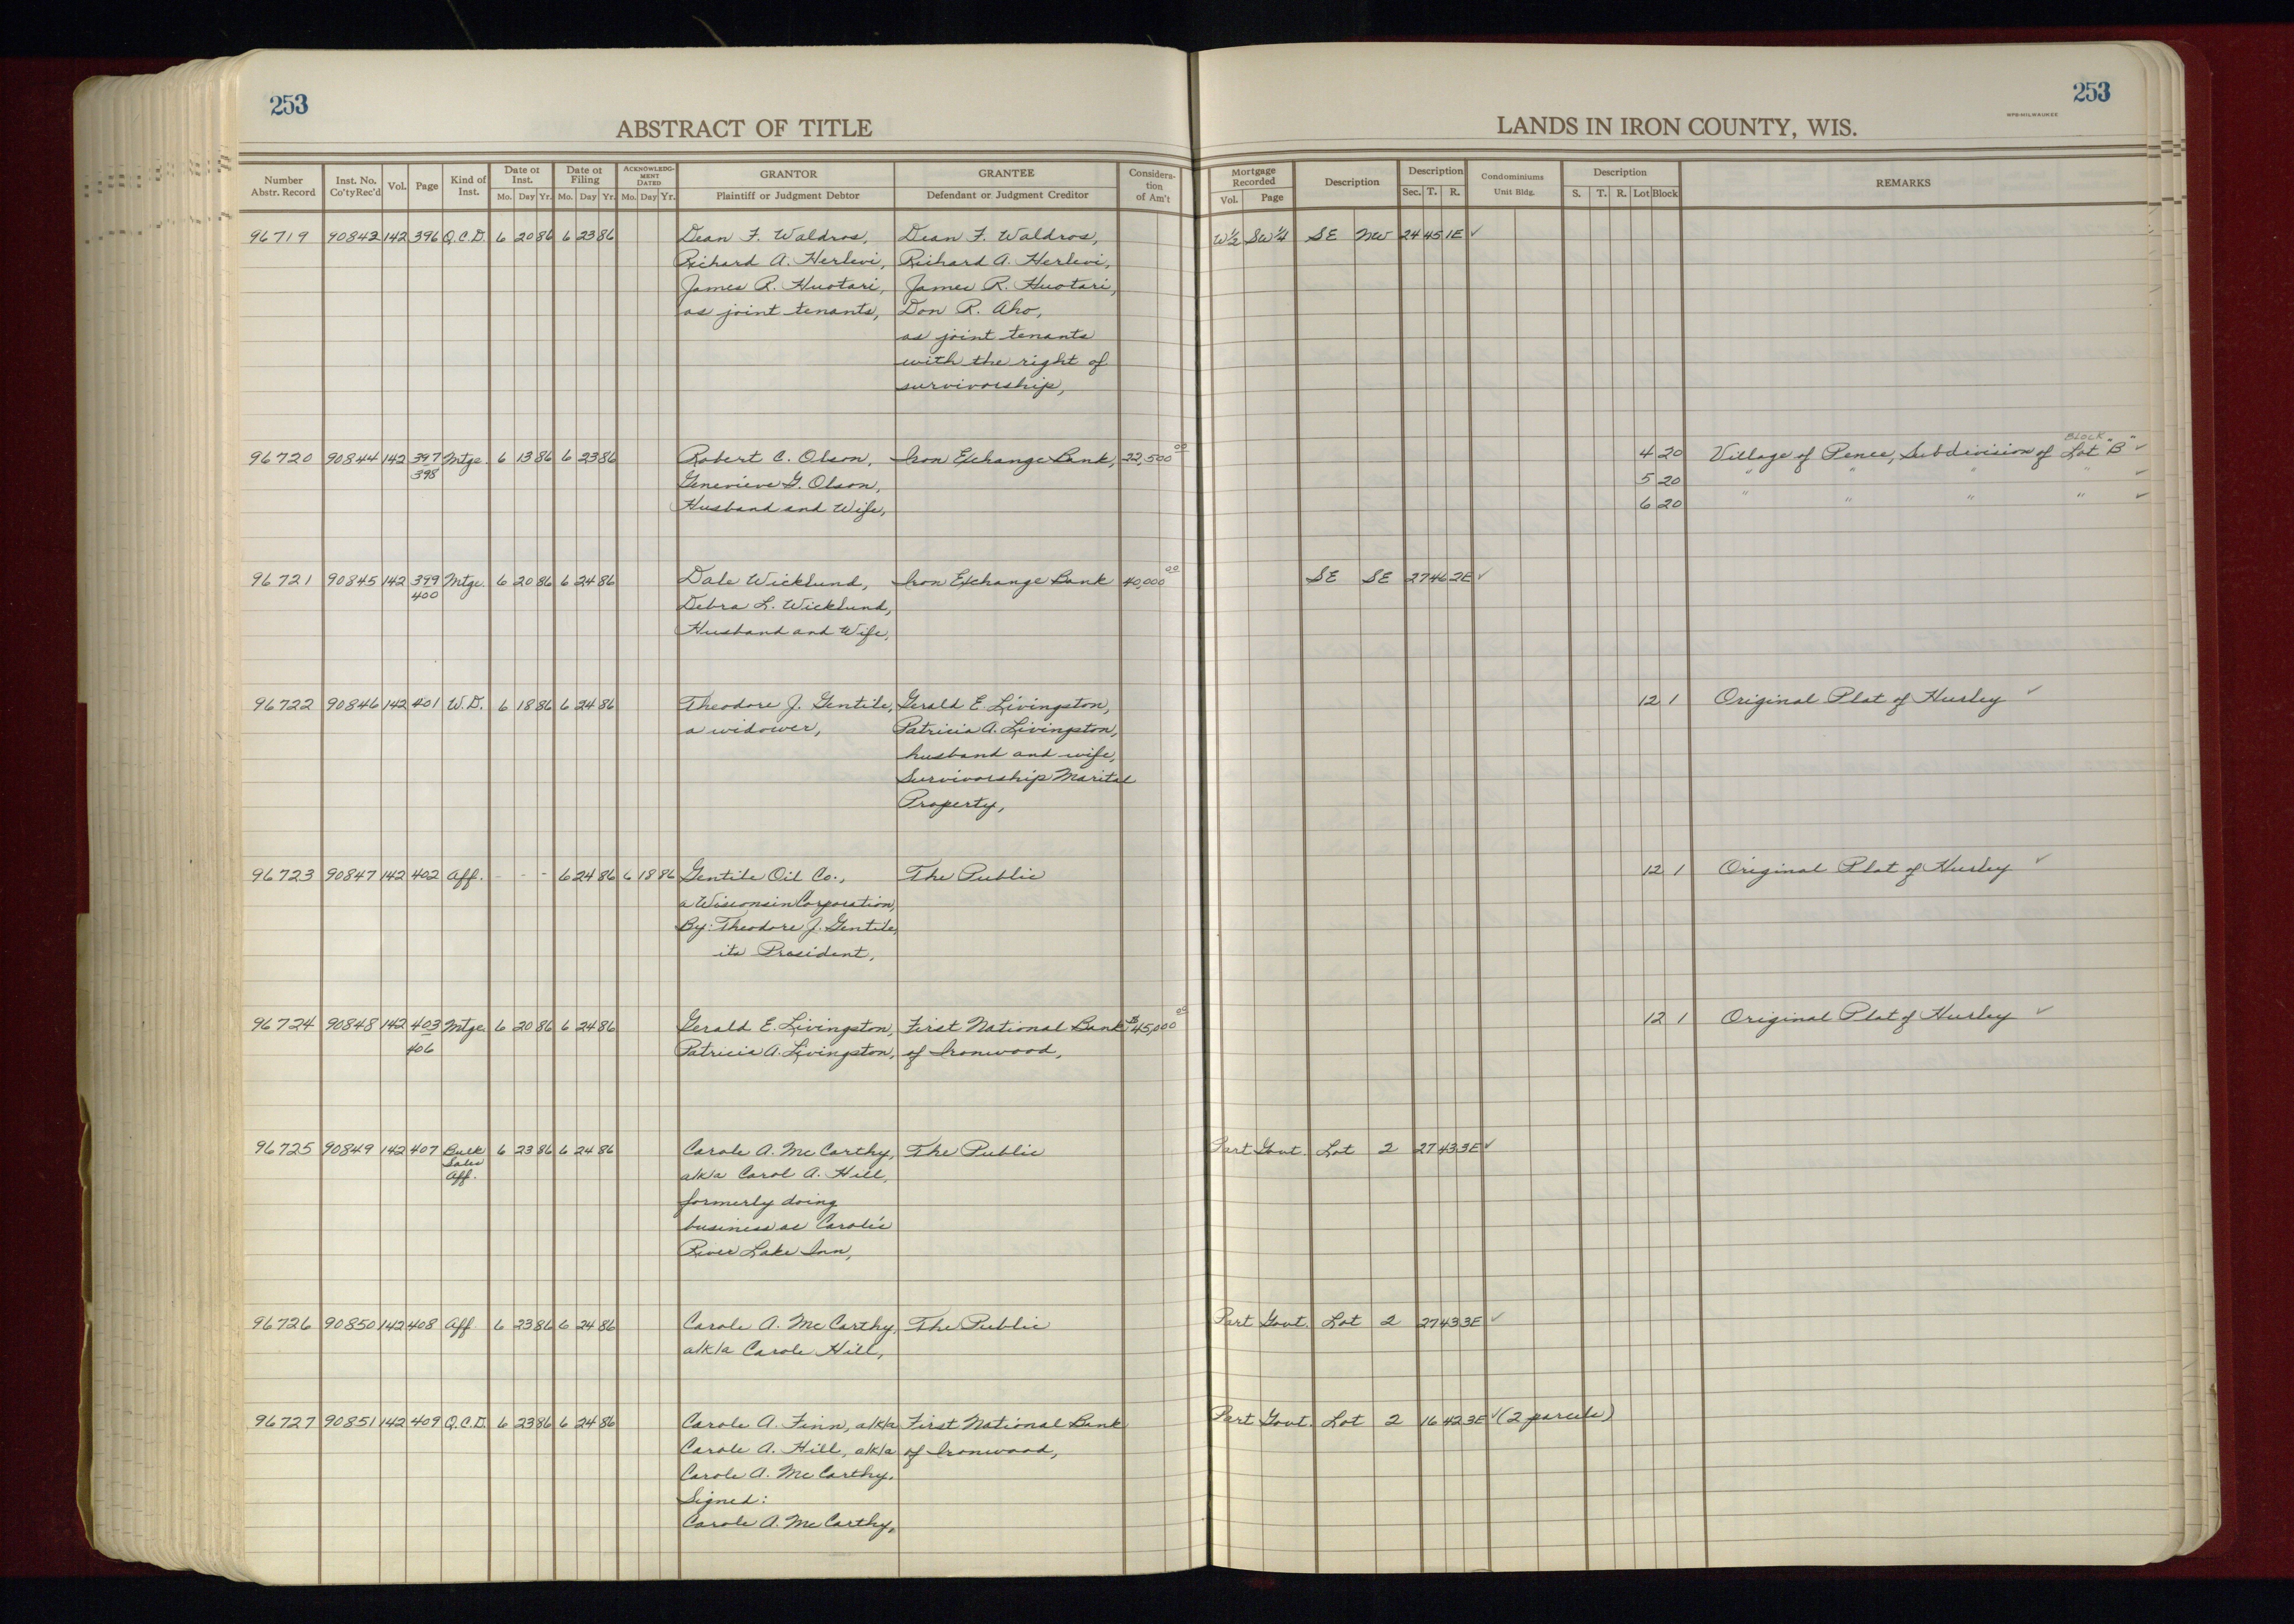 253
253
ABSTRACT OF TITLE
LANDS IN IRON COUNTY, WIS.
NPB-MILWAUKEE
Number Abstr. Record | Inst. No. Co'ty Rec'd | Vol. | Page | Kind of Inst. | Date of Inst. Mo. Day Yr. | Date of Filing Mo. Day Yr. | ACKNOWLEDGMENT DATED Mo. Day Yr. | GRANTOR Plaintiff or Judgment Debtor | GRANTEE Defendant or Judgment Creditor | Consideration of Am't | Mortgage Recorded Vol. Page | Description | Description Sec. T. R. | Condominiums Unit Bldg. | Description S. T. R. Lot Block | REMARKS
96719 90843 142 396 Q.C.D. 6 20 86 6 23 86 Dean F. Waldros, Dean F. Waldros, W½ SW¼ SE NW 24 45 1E ✓
Richard A. Herlevi, Richard A. Herlevi,
James R. Huotari, James R. Huotari,
as joint tenants, Don R. Aho,
as joint tenants
with the right of
survivorship,
96720 90844 142 397 Mtge. 6 13 86 6 23 86 Robert C. Olson, Iron Exchange Bank, 22,500 00 4 20 Village of Pence, Subdivision of Lot "B" ✓
BLOCK
398 Genevieve G. Olson, 5 20 " " " " ✓
Husband and Wife, 6 20 " " " " ✓
96721 90845 142 399 Mtge. 6 20 86 6 24 86 Dale Wicklund, Iron Exchange Bank 40,000 00 SE SE 27 46 2E ✓
400 Debra L. Wicklund,
Husband and Wife,
96722 90846 142 401 W.D. 6 18 86 6 24 86 Theodore J. Gentile, Gerald E. Livingston, 12 1 Original Plat of Hurley ✓
a widower, Patricia A. Livingston,
husband and wife,
Survivorship Marital
Property,
96723 90847 142 402 Aff. - - - 6 24 86 6 18 86 Gentile Oil Co., The Public 12 1 Original Plat of Hurley ✓
a Wisconsin Corporation,
By: Theodore J. Gentile,
its President,
96724 90848 142 403 Mtge. 6 20 86 6 24 86 Gerald E. Livingston, First National Bank $45,000 00 12 1 Original Plat of Hurley ✓
406 Patricia A. Livingston, of Ironwood,
96725 90849 142 407 Bulk 6 23 86 6 24 86 Carole A. McCarthy, The Public Part Govt. Lot 2 27 43 3E ✓
Sales
Aff. a/k/a Carol A. Hill,
formerly doing
business as Carol's
River Lake Inn,
96726 90850 142 408 Aff. 6 23 86 6 24 86 Carole A. McCarthy, The Public Part Govt. Lot 2 27 43 3E ✓
a/k/a Carole Hill,
96727 90851 142 409 Q.C.D. 6 23 86 6 24 86 Carole A. Finn, a/k/a First National Bank Part Govt. Lot 2 16 42 3E ✓ (2 parcels)
Carole A. Hill, a/k/a of Ironwood,
Carole A. McCarthy.
Signed:
Carole A. McCarthy,